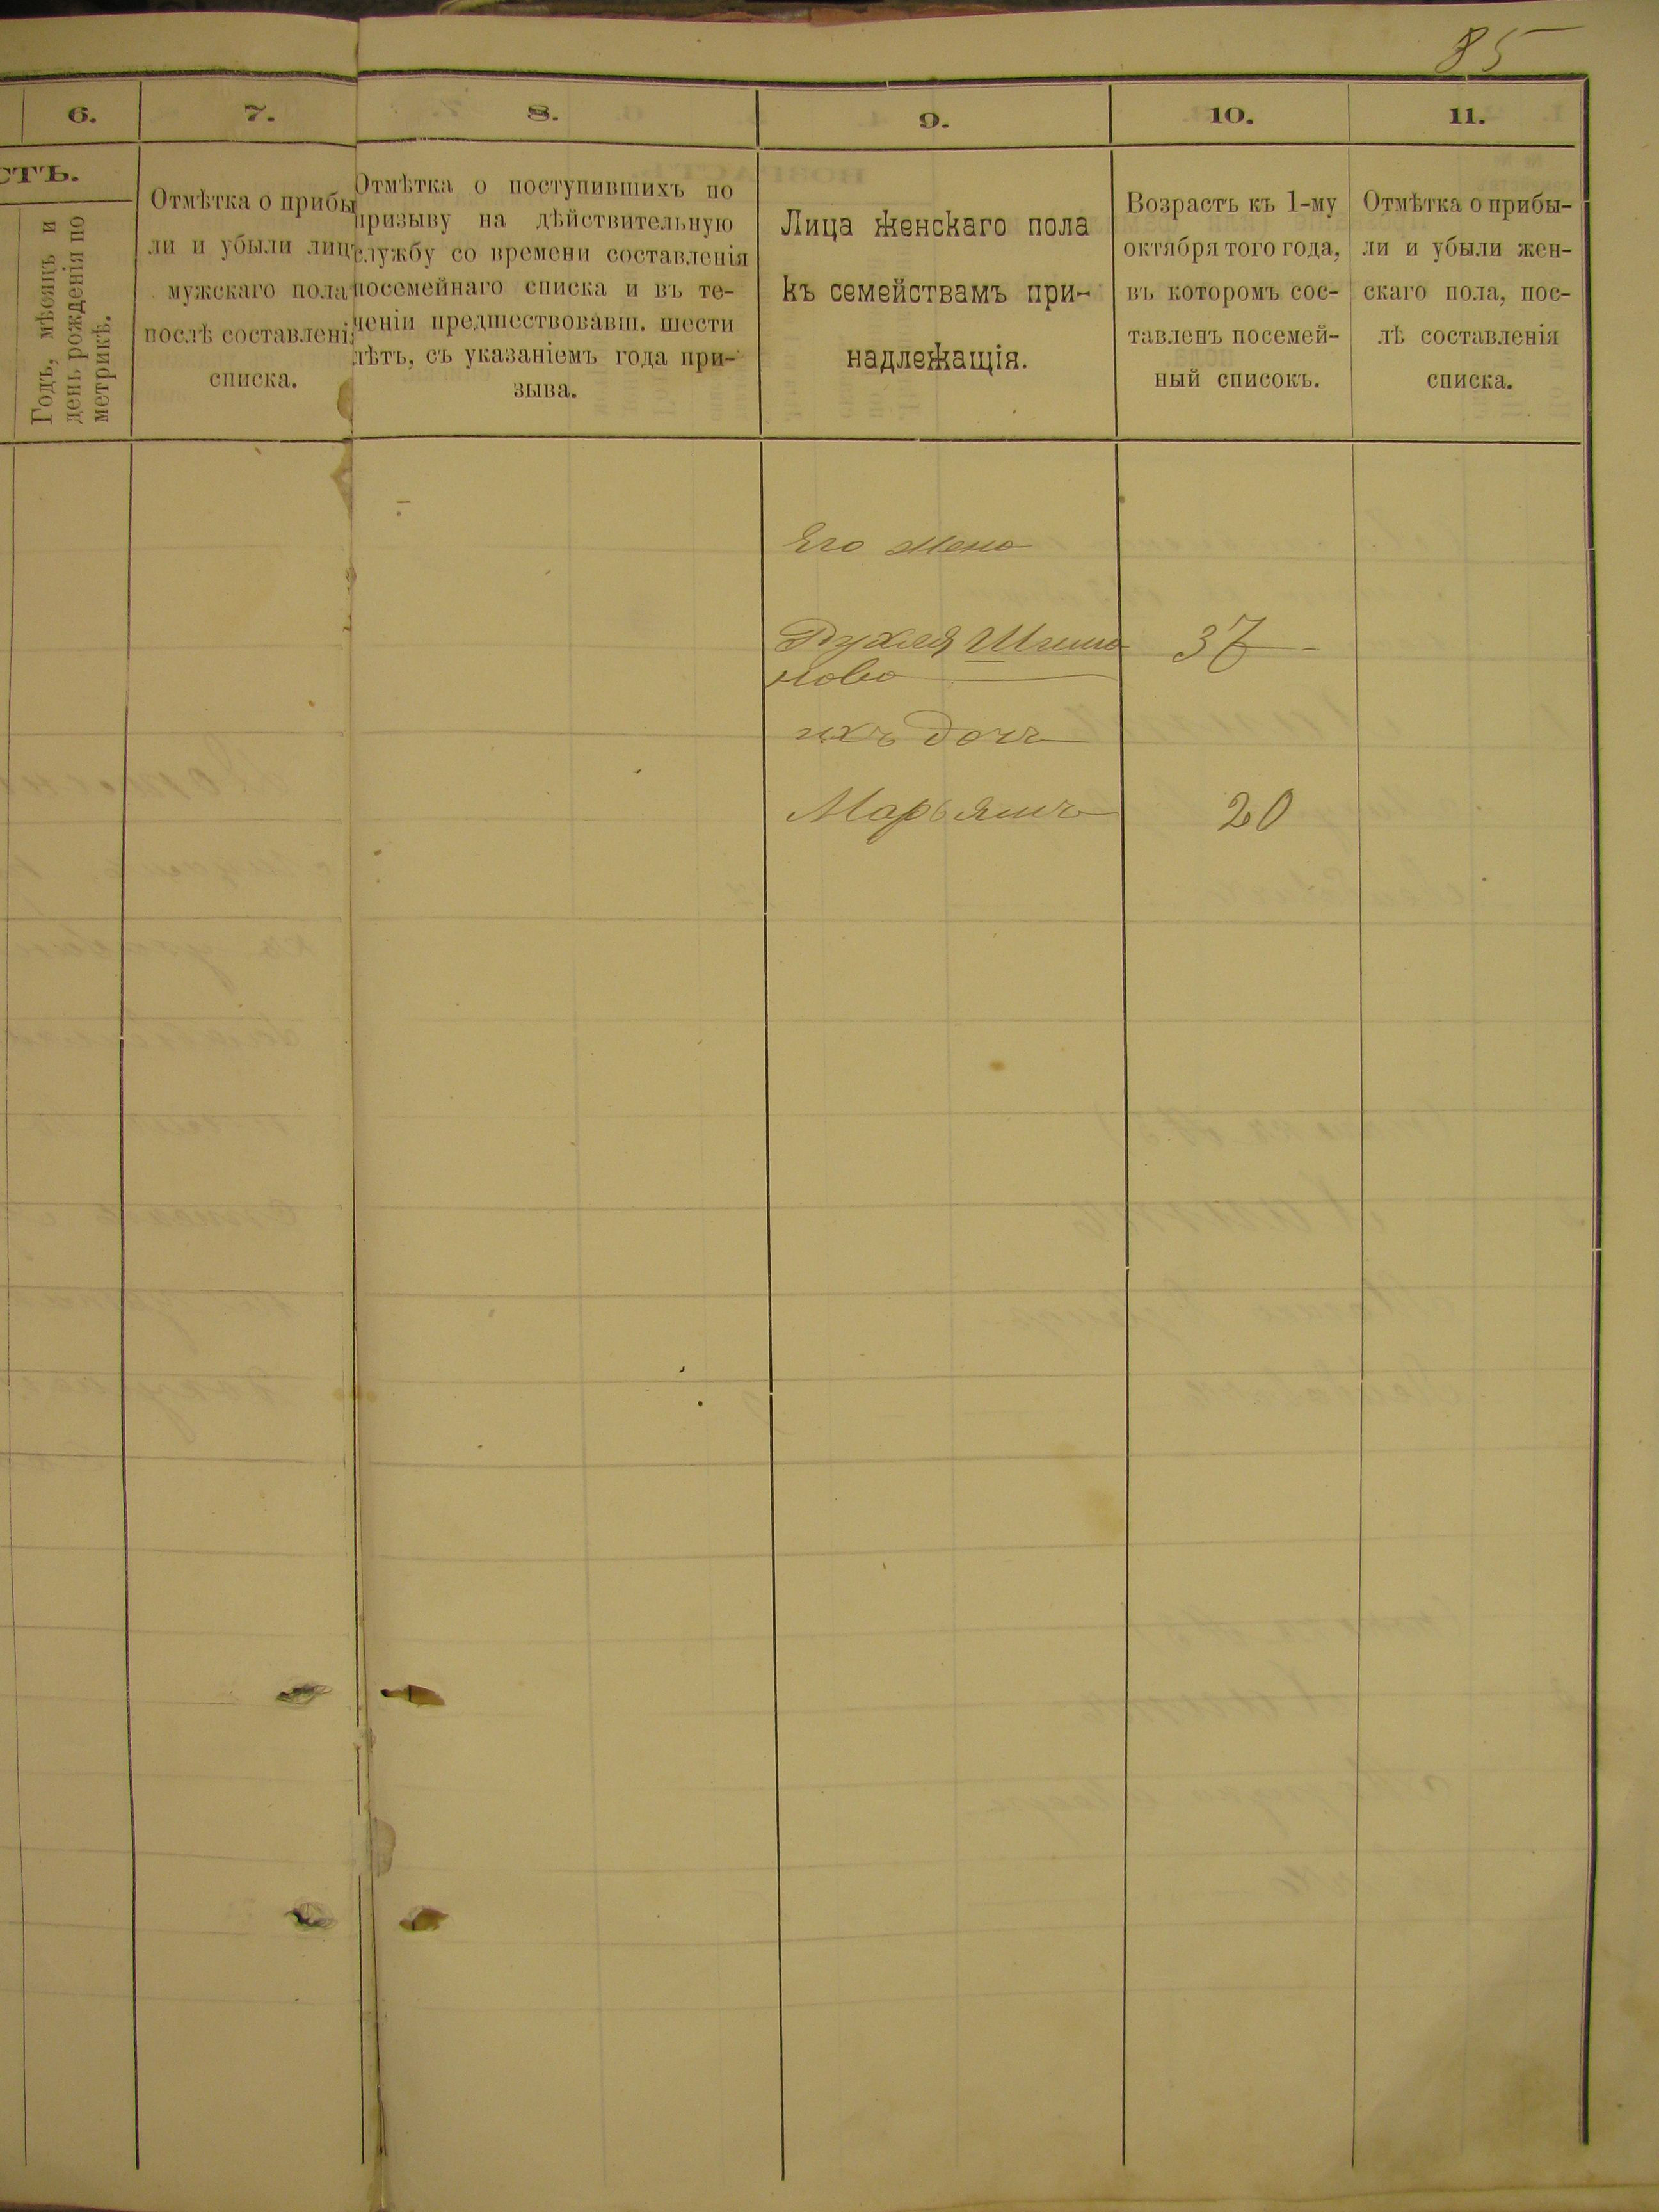 85
6.
7.
8.
9.
10.
11.
СТЪ.
Годъ, мѣсяцъ и
день рожденія по
метрикѣ.
Отмѣтка о прибы
ли и убыли лиц
мужскаго пола
послѣ составлені
списка.
Отмѣтка о поступившихъ по
призыву на дѣйствительную
службу со времени составленія
посемейнаго списка и въ те-
ченіи предшествовавш. шести
лѣтъ, съ указаніемъ года при-
зыва.
Лица женскаго пола
къ семействамъ при-
надлежащія.
Возрастъ къ 1-му
октября того года,
въ которомъ сос-
тавленъ посемей-
ный списокъ.
Отмѣтка о прибы-
ли и убыли жен-
скаго пола, пос-
лѣ составленія
списка.
Его жена
Рухля 37
ихъ дочь
Марьямъ 20